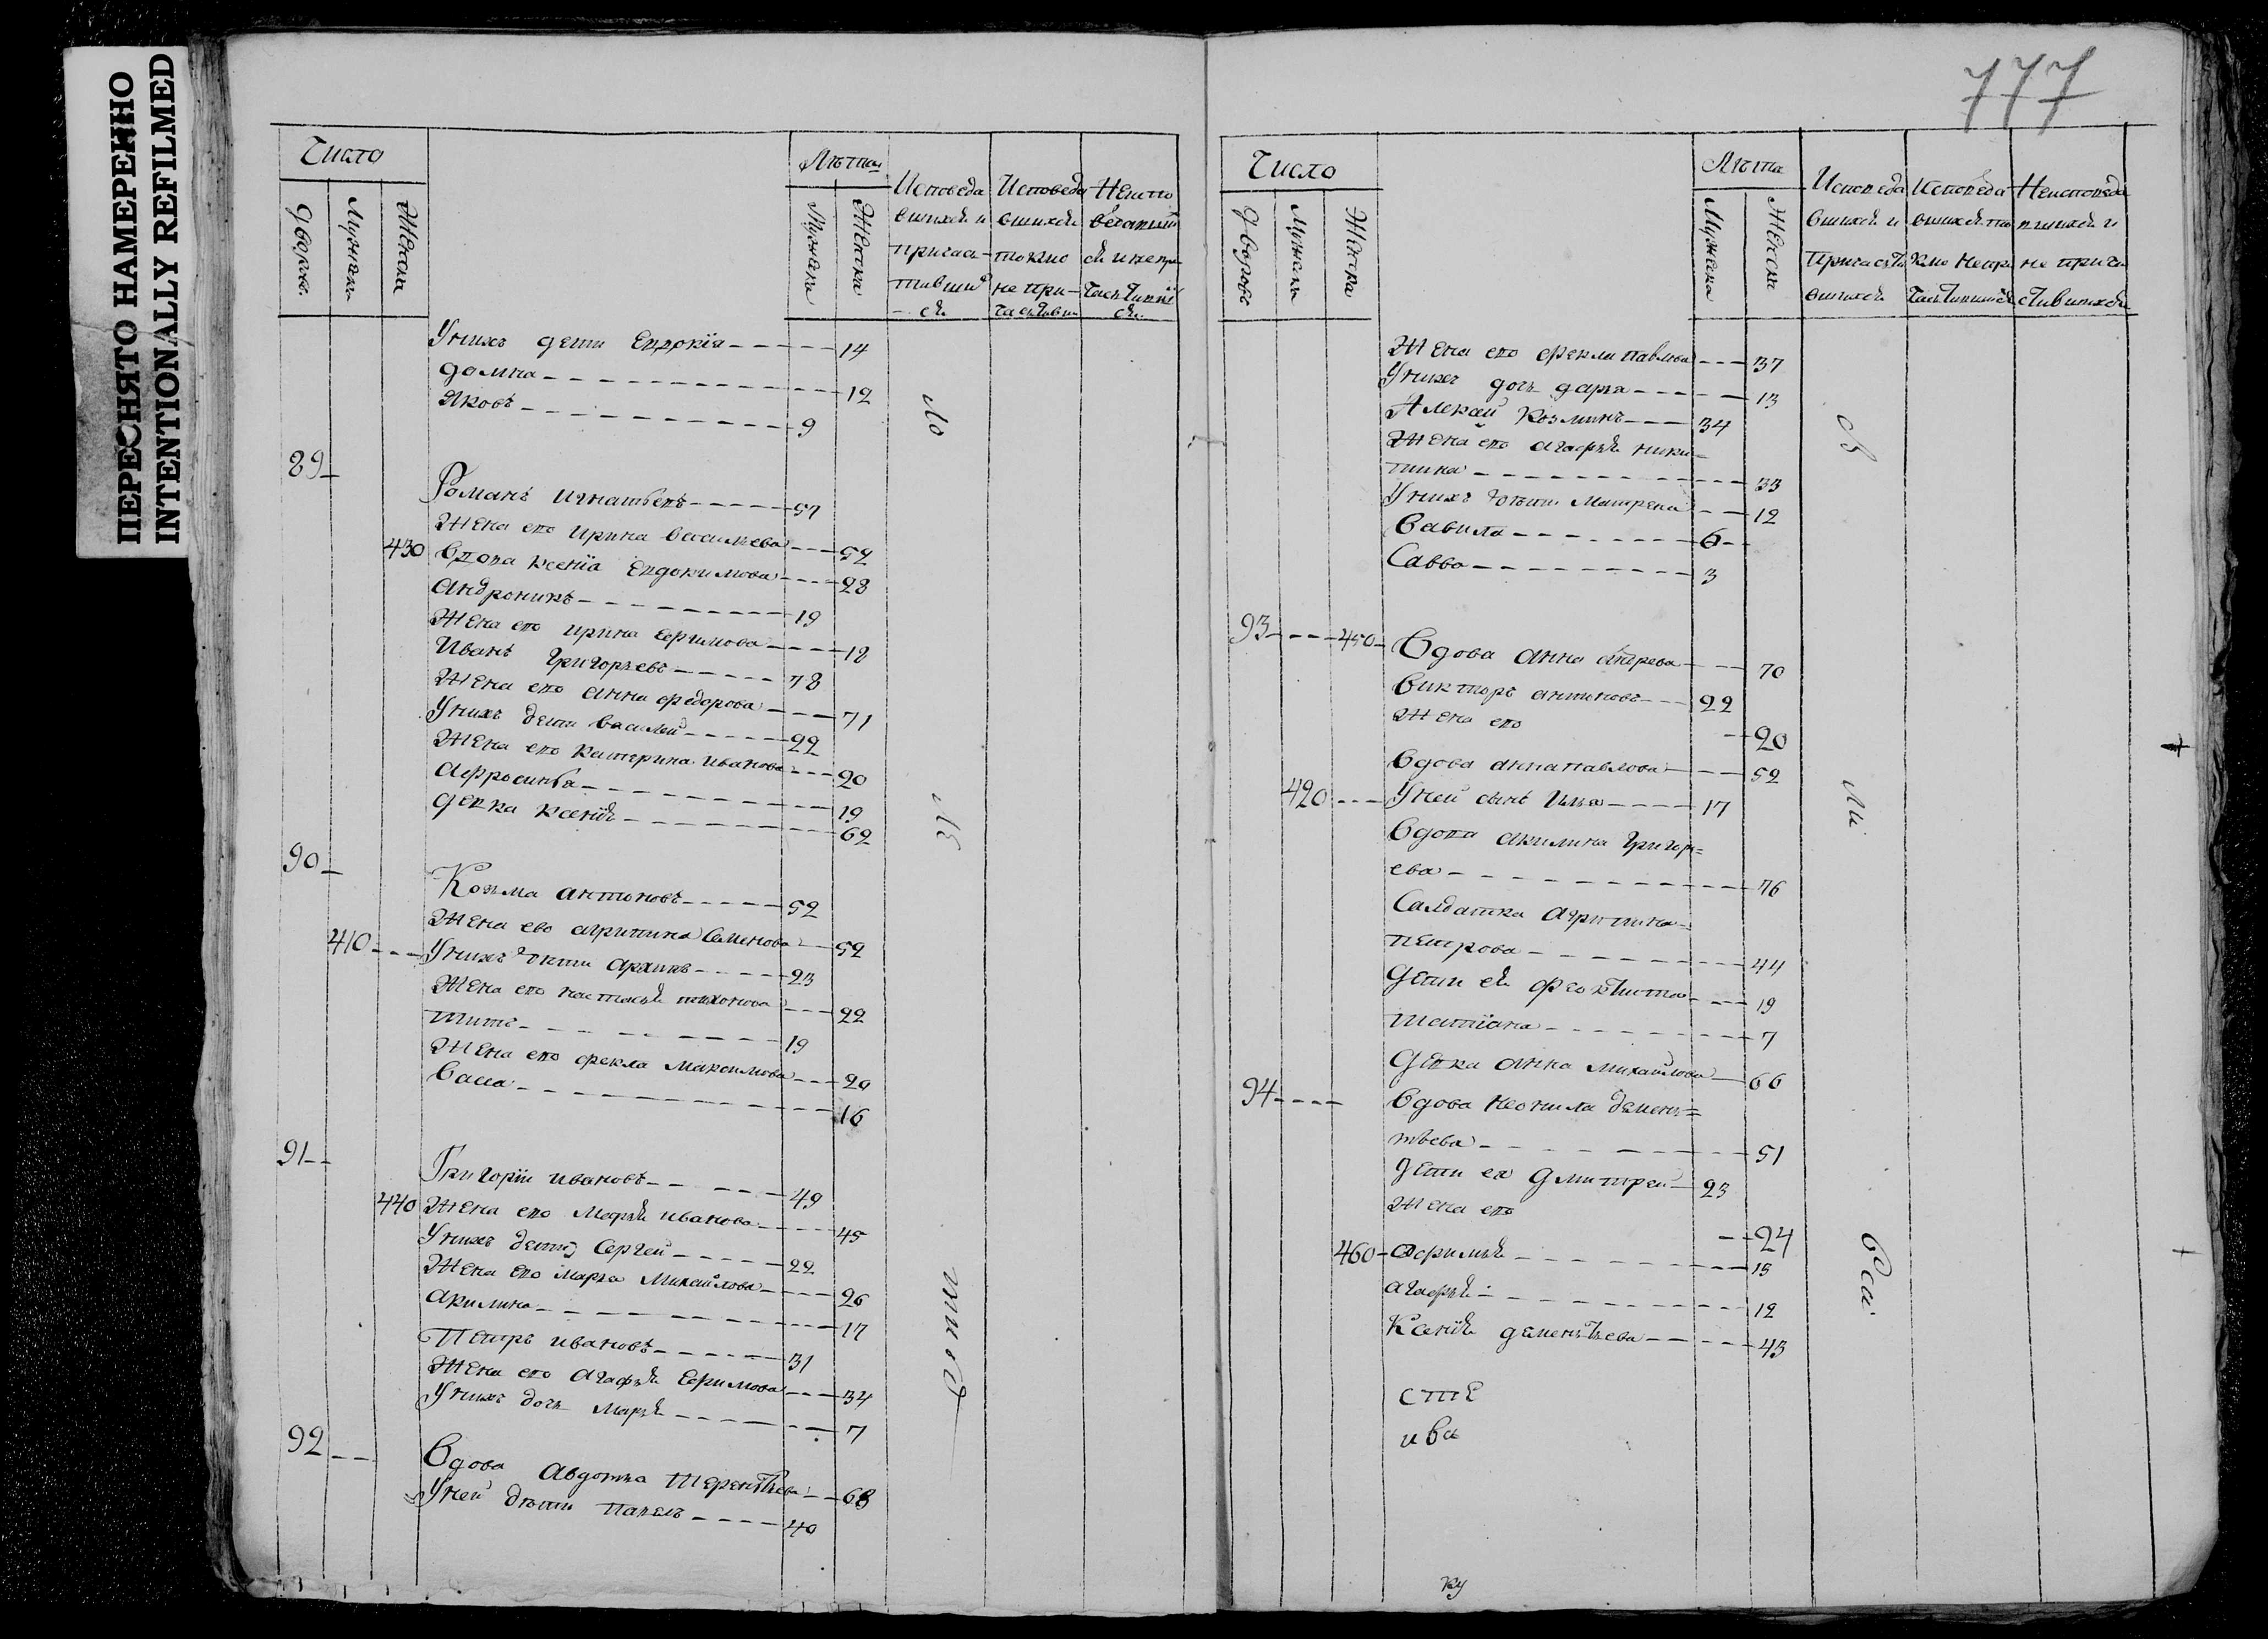 ПЕРЕСНЯТО НАМЕРЕННО
INTENTIONALLY REFILMED
Число
Дворовъ
Мужеска
Женска
Лѣта
Мужеска
Женска
Исповеда
вшихся и
причас-
тивши
ся
Исповеда
вшихся
токмо
не при-
частивш
Неиспо
ведавши
ся и непри
частивші
ся
Унихъ дети Евдокія 14
домна 12
Яковъ 9
89
Романъ игнатьевъ 57
Жена ево ирина васильева 52
430 Вдова ксенія Евдокимова 28
андроникъ 19
Жена ево ирина Ефимова 18
Иванъ григорьевъ 78
Жена ево анна федорова 71
Унихъ дети василей 22
Жена ево катерина иванова 20
афросинья 19
девка ксенія 62
90
Козьма антоновъ 52
Жена ево агрипина Семенова 52
410 Унихъ дѣти архипъ 23
Жена ево настасья тихонова 22
титъ 19
Жена ево фекла Максимова 20
васса 16
91
Григорій ивановъ 49
440 Жена ево Марья иванова 45
Унихъ дети Сергей 22
Жена ево марья Михайлова 26
акилина 17
Петръ ивановъ 31
Жена ево агафья Ефимова 34
Унихъ дочь Марья 7
92
Вдова авдотья терентьева 68
Уней дѣти павелъ 40
777
Число
Дворовъ
Мужеска
Женска
Лѣта
Мужеска
Женска
Исповеда
вшихся и
причасти
вшихся
Исповеда
вшихся то
кмо непри
частившися
Неисповеда
вшихся и
не прича
стившихся
Жена ево фекла павлова 37
Унихъ дочь дарья 13
Алексей козминъ 34
Жена ево агафья ники-
тина 33
Унихъ дѣти Матрена 12
Вавила 6
Савва 3
93 450 Вдова анна 70
Викторъ антиповъ 22
Жена ево 20
Вдова анна павлова 52
420 Уней сынъ Илья 17
Вдова акилина григорь=
ева 76
Салдатка агрипина
петрова 44
Дети ея феоктиста 19
татіана 7
Девка анна михайлова 66
94 Вдова неонила демень=
тьева 51
Дети ея Дмитрей 23
Жена ево 24
460 Ефимья 15
агафья 12
Ксенія дементьева 43
сте
ива